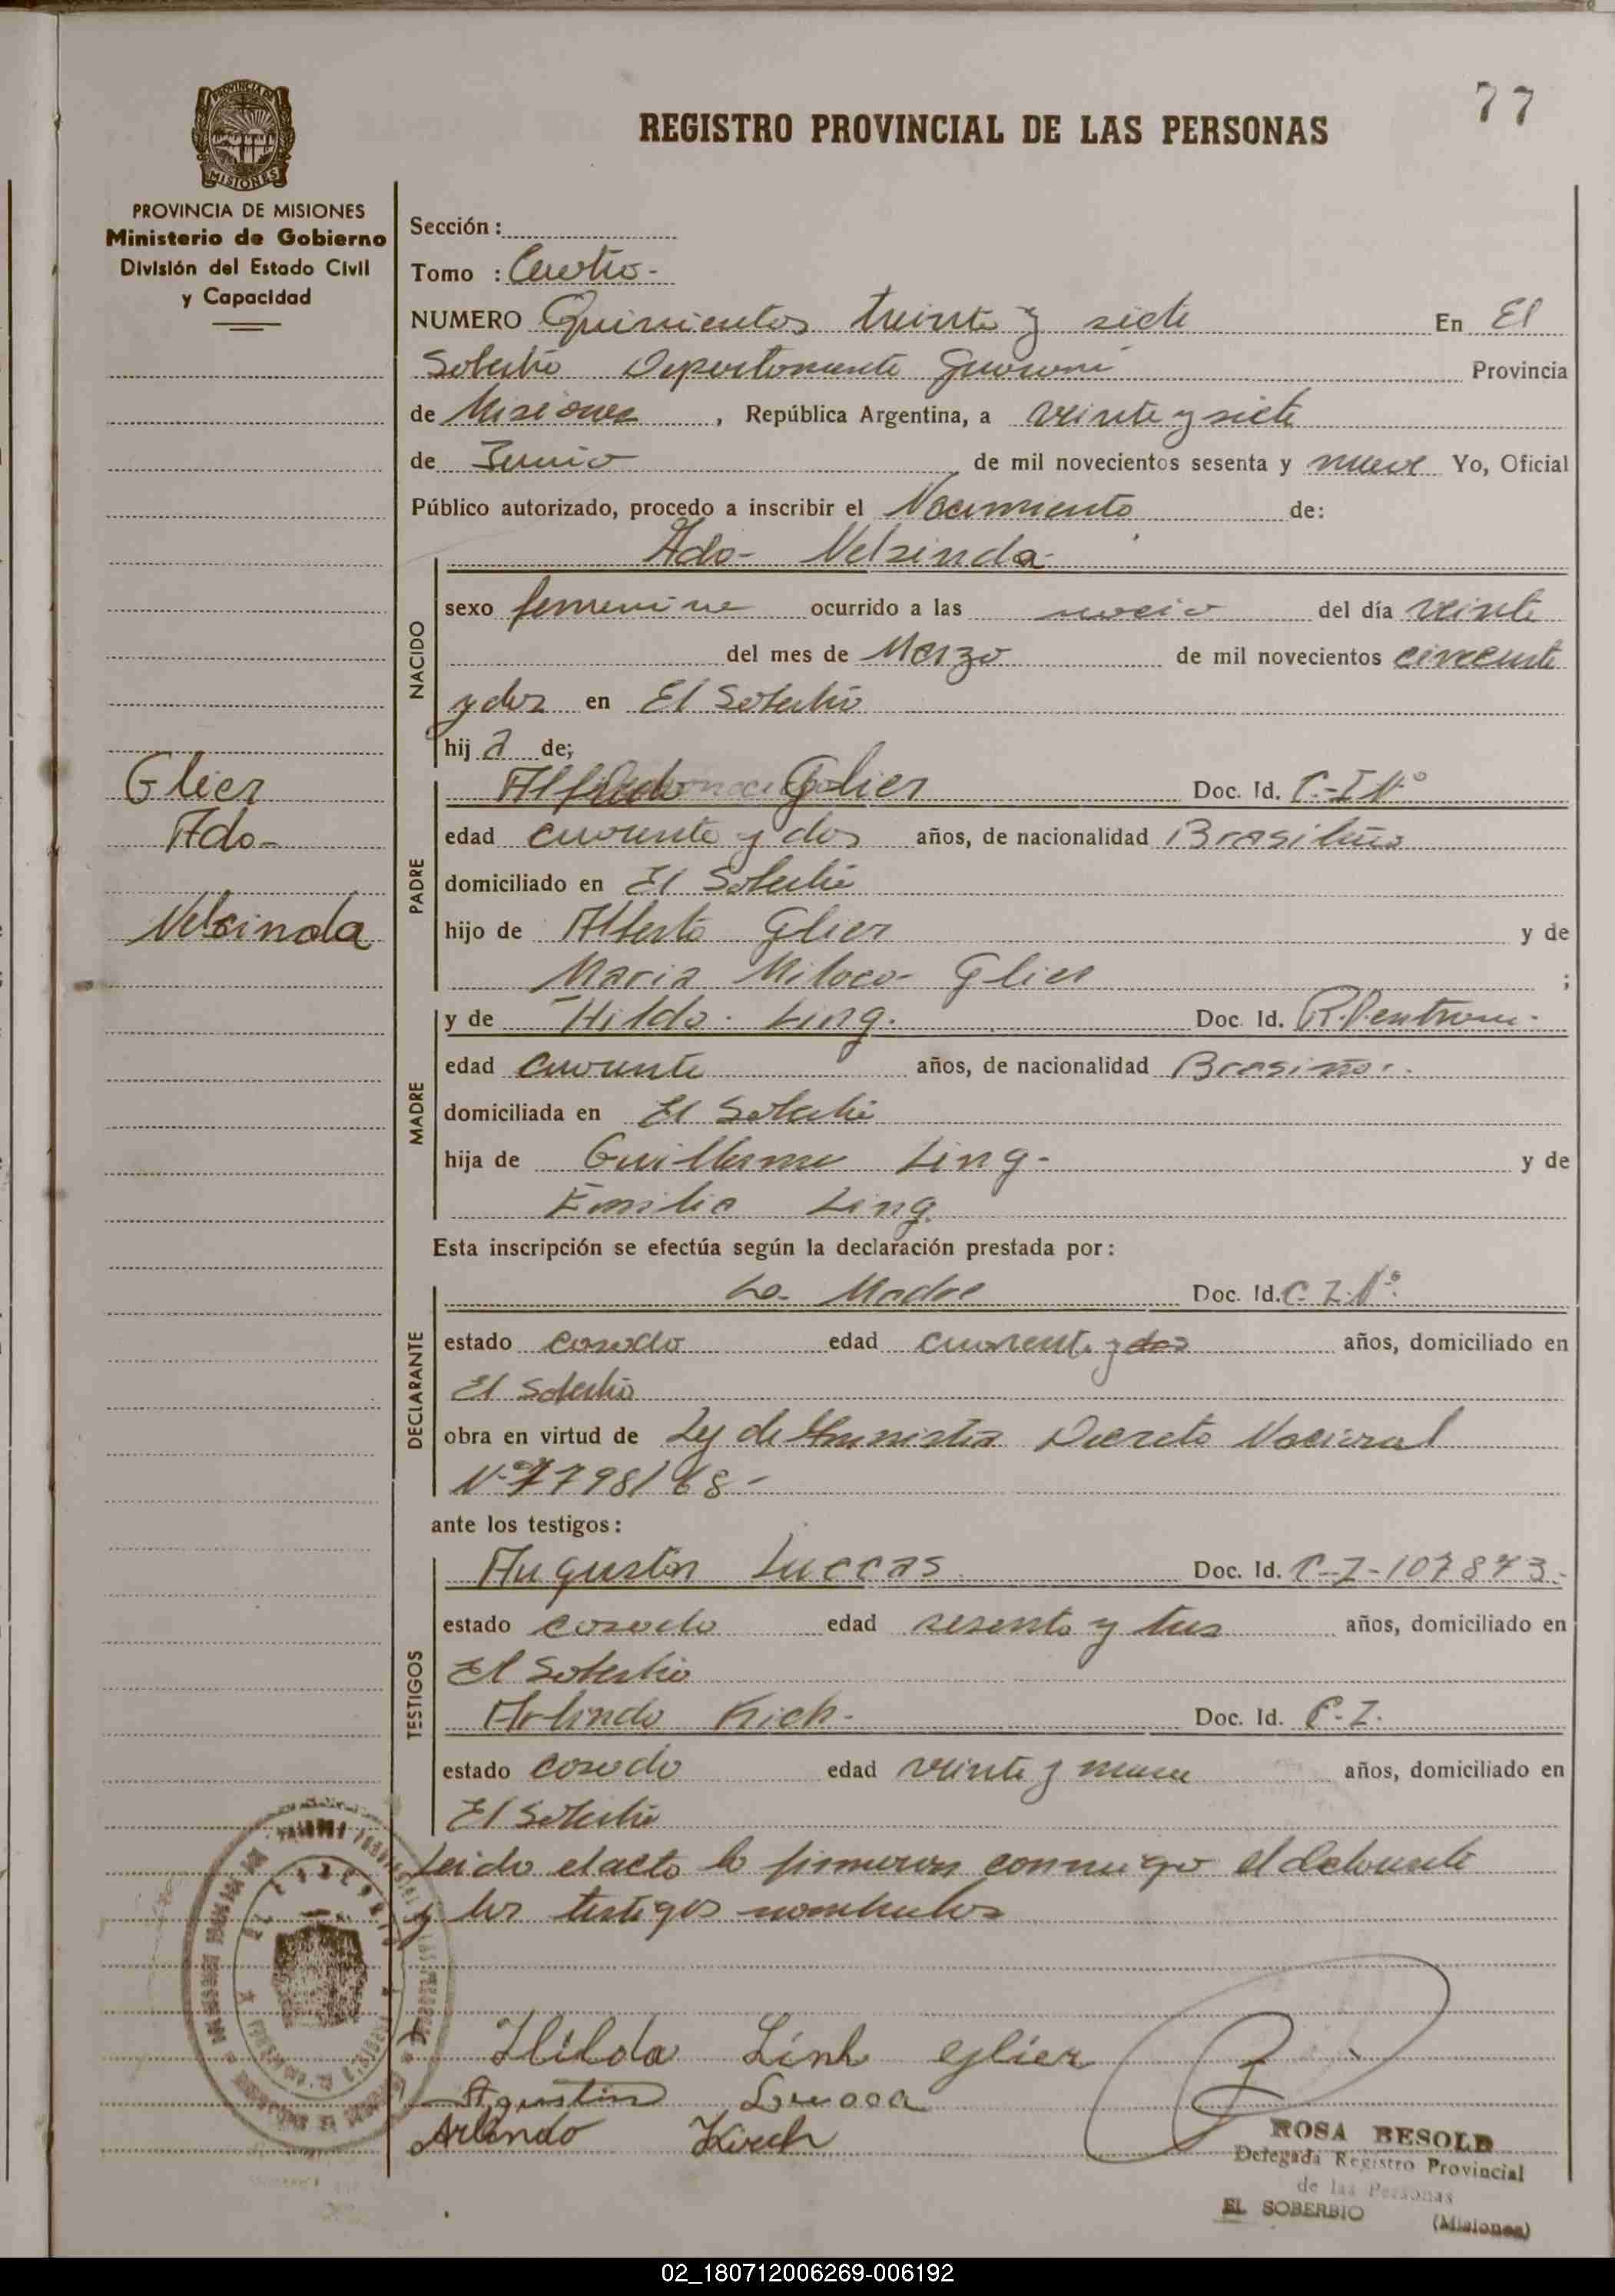 77
REGISTRO PROVINCIAL DE LAS PERSONAS
PROVINCIA DE MISIONES
MISIONES
PROVINCIA DE MISIONES
Ministerio de Gobierno
División del Estado Civil
y Capacidad
Sección:
Tomo : Cuatro-
NUMERO Quinientos treinta y siete En El
Soberbio Departamento Guaraní Provincia
de Misiones, República Argentina, a veinte y siete
de Junio de mil novecientos sesenta y nueve Yo, Oficial
Público autorizado, procedo a inscribir el Nacimiento de:
Ada- Nelsinda-
NACIDO
sexo femenino ocurrido a las del día veinte
del mes de Marzo de mil novecientos cincuenta
y dos en El Soberbio
hij a de;
Glier
Ada-
Nelsinda
PADRE
Alfredo Glier Doc. Id. C.-I Nº
edad cuarenta y dos años, de nacionalidad Brasileño
domiciliado en El Soberbio
hijo de Alberto Glier y de
Maria Glier ;
MADRE
y de Hilda. Ling. Doc. Id.
edad cuarenta años, de nacionalidad
domiciliada en El Soberbio
hija de Guillermo Ling- y de
Emilia Ling.
Esta inscripción se efectúa según la declaración prestada por:
DECLARANTE
La Madre Doc. Id. C.I.Nº.
estado casado edad cuarenta y dos años, domiciliado en
El Soberbio
obra en virtud de Ley de Amnistia Decreto Nacional
Nº 7798/68-
ante los testigos:
TESTIGOS
Augustin Luccas Doc. Id. C-I-107873.-
estado casado edad sesenta y tres años, domiciliado en
El Soberbio
Arlindo Kich- Doc. Id. C-I.
estado casado edad veinte y nueve años, domiciliado en
El Soberbio
Leido el acto lo firmaron conmigo el declarante
y los testigos nombrados
Hilda Linh Glier
Agustin
Arlindo Kirch
ROSA BESOLD
Delegada Registro Provincial
de las Personas
EL SOBERBIO (Misiones)
02_180712006269-006192